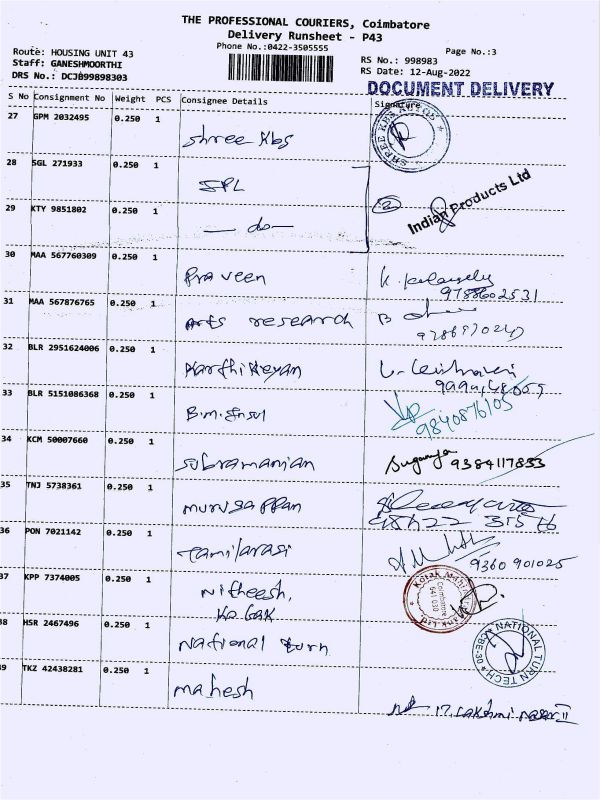 THE PROFESSIONAL COURIERS, Coimbatore
Delivery Runsheet - P43
Phone No.:0422-3505555
Page No.:3
Route: HOUSING UNIT 43
Staff: GANESHMOORTHI
DRS No.: DCJB99898303
RS No.: 998983
RS Date: 12-Aug-2022
DOCUMENT DELIVERY
S No Consignment No Weight PCS Consignee Details Signature
27 GPM 2032495 0.250 1 Shree Kbs
28 SGL 271933 0.250 1 IPL
Indian Products Ltd
29 KTY 9851802 0.250 1 — do — 2
30 MAA 567760309 0.250 1 Praveen K
9788602531
31 MAA 567876765 0.250 1 Arts research B
32 BLR 2951624006 0.250 1 Karthikeyan
33 BLR 5151086368 0.250 1
9840876105
34 KCM 50007660 0.250 1 Subramanian Suganya 9384117853
35 TNJ 5738361 0.250 1 Murugappan
36 PON 7021142 0.250 1 Tamilarasi
9360 901025
37 KPP 7374005 0.250 1 Nitheesh,
Kotak
Coimbatore
641 030
38 HSR 2467496 0.250 1 National turn
NATIONAL TURN TECH
CBE-30
39 TKZ 42438281 0.250 1 Mahesh
17, Lakshmi nagar II